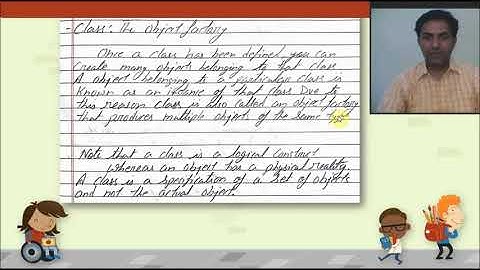 - Class: The Object factory
Once a class has been defined, you can
create many object belonging to that class
A object belonging to a particular class is
known as an instance of that class Due to
this reason class is also called an object factory
that produces multiple objects of the same type
Note that a class is a logical construct
whereas an object has a physical reality.
A class is a specification of a set of objects
and not the actual object.